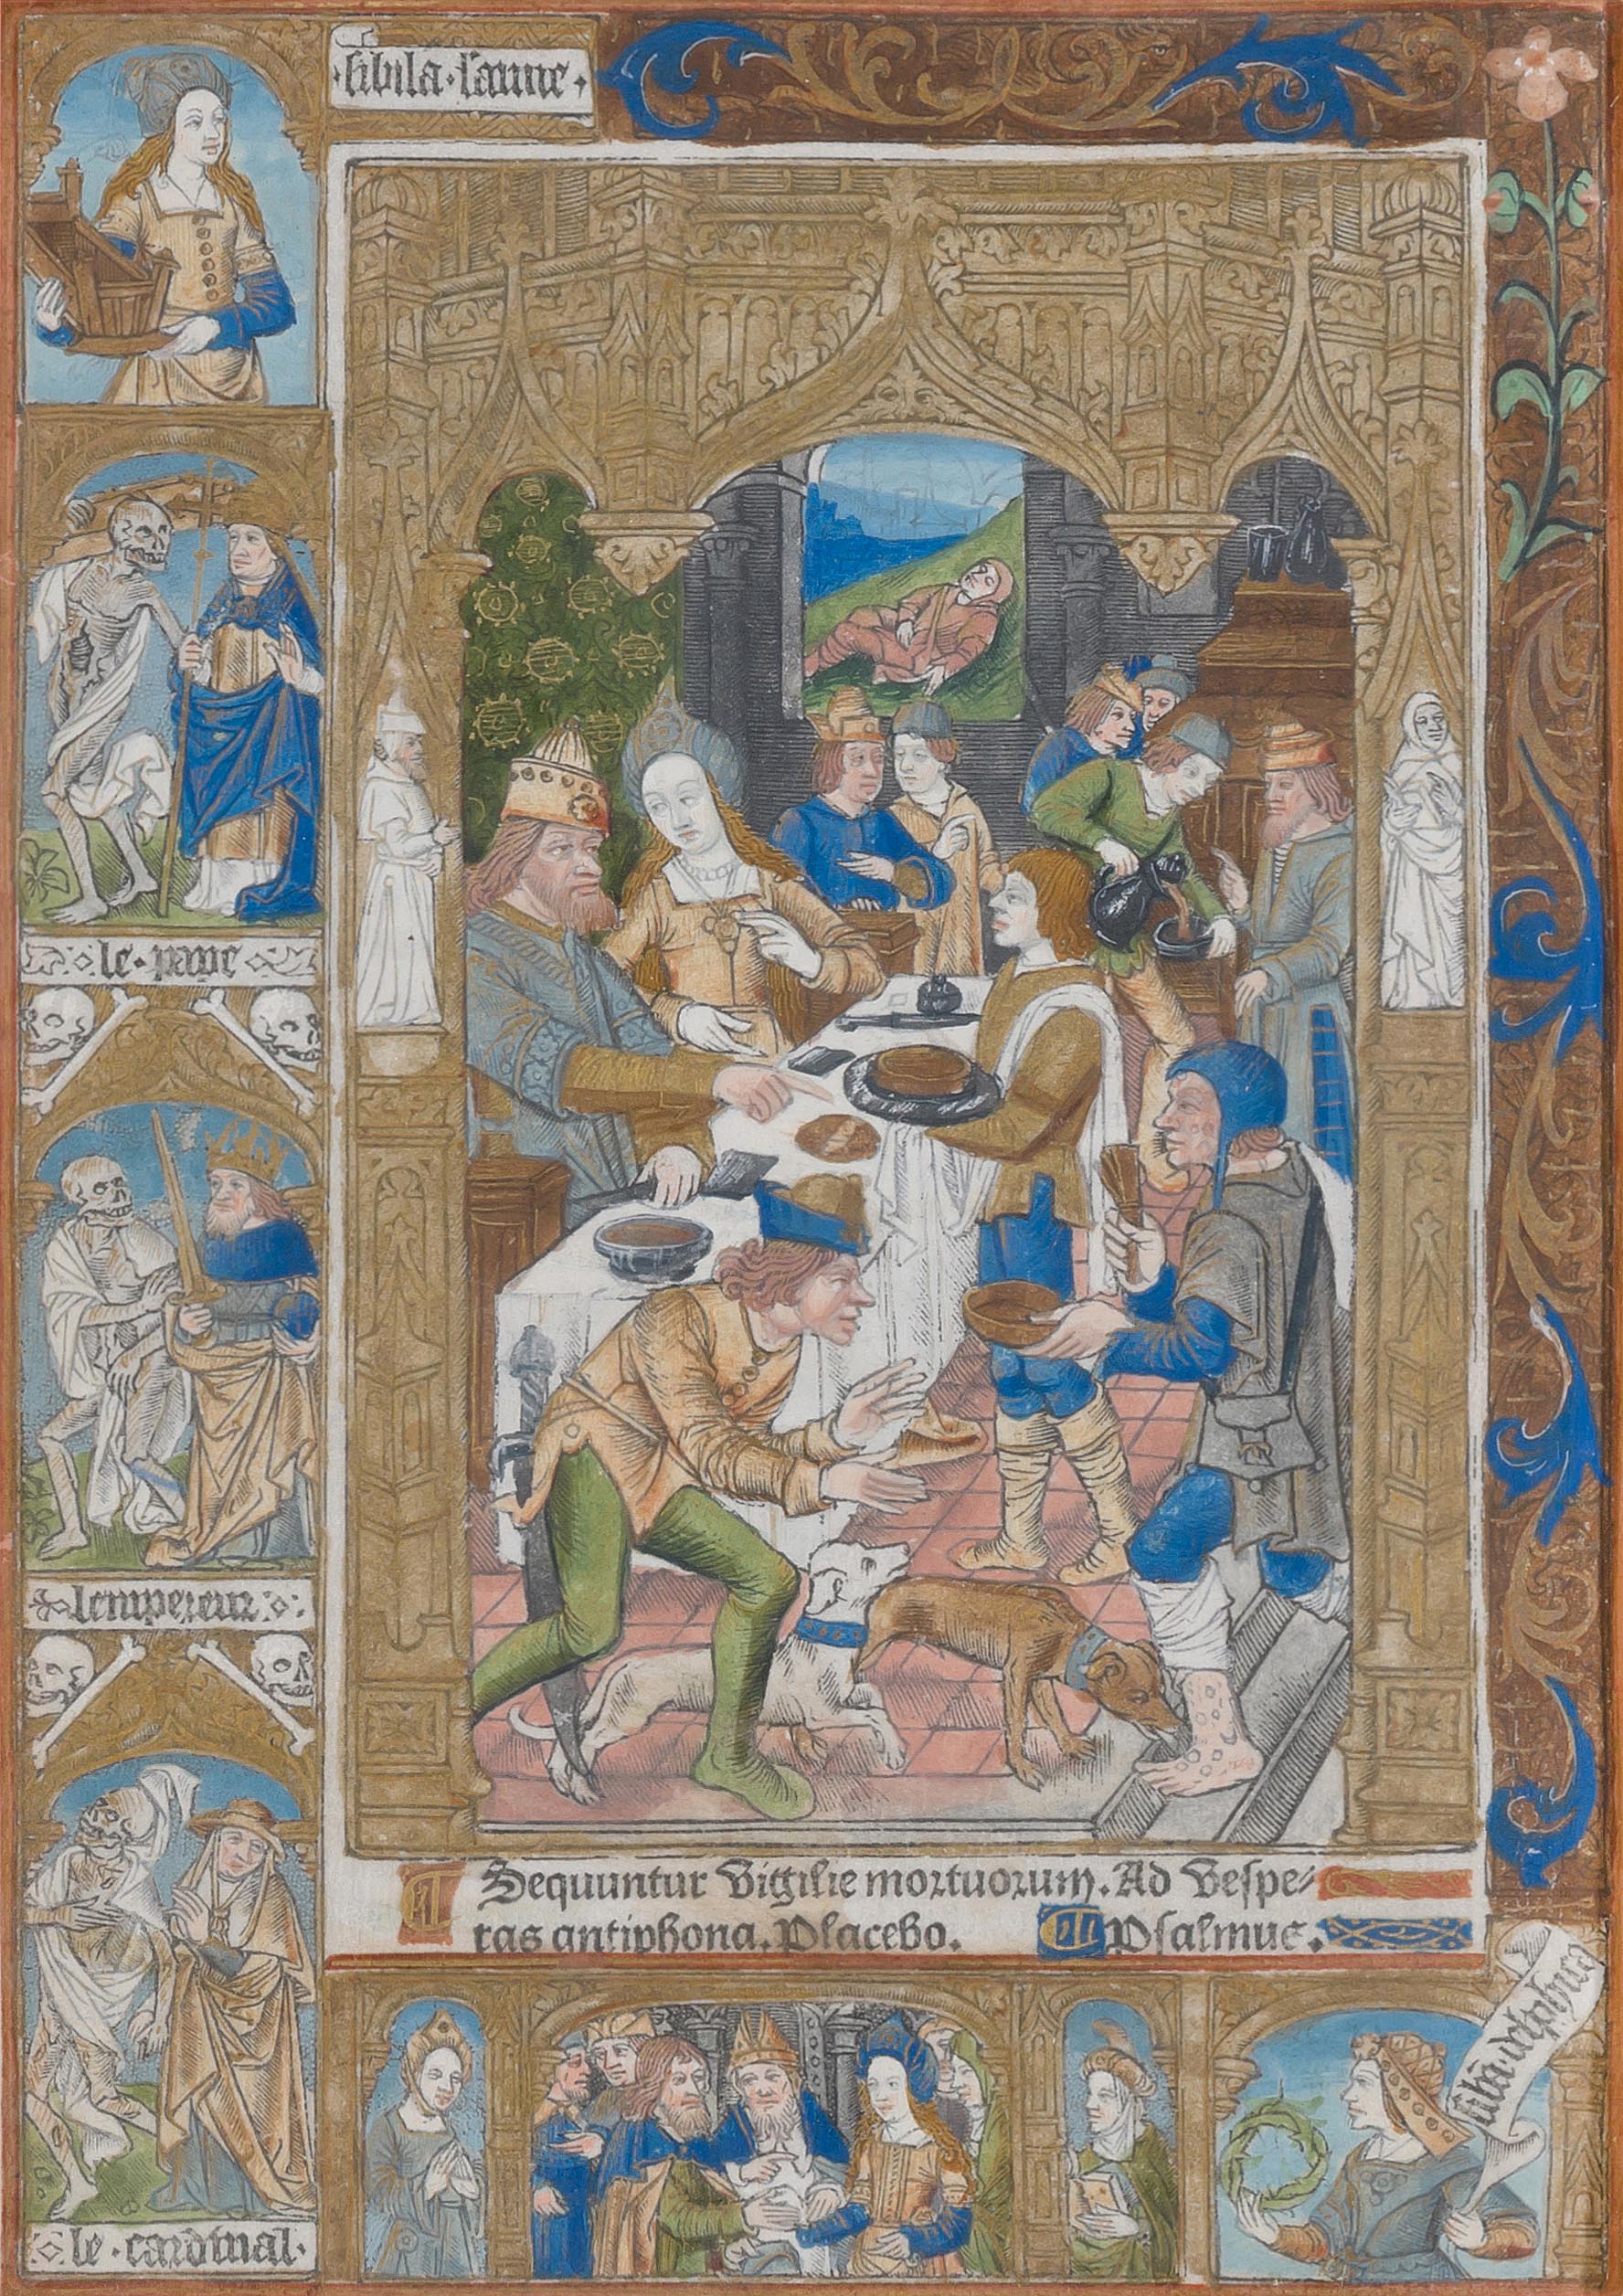 ·sibila·samie·
le·pape
lempereur
le·cardinal·
Sequuntur Vigilie mortuorum. Ad Vespe⸗
ras antiphona. Placebo. Psalmus.
sibila·delphica